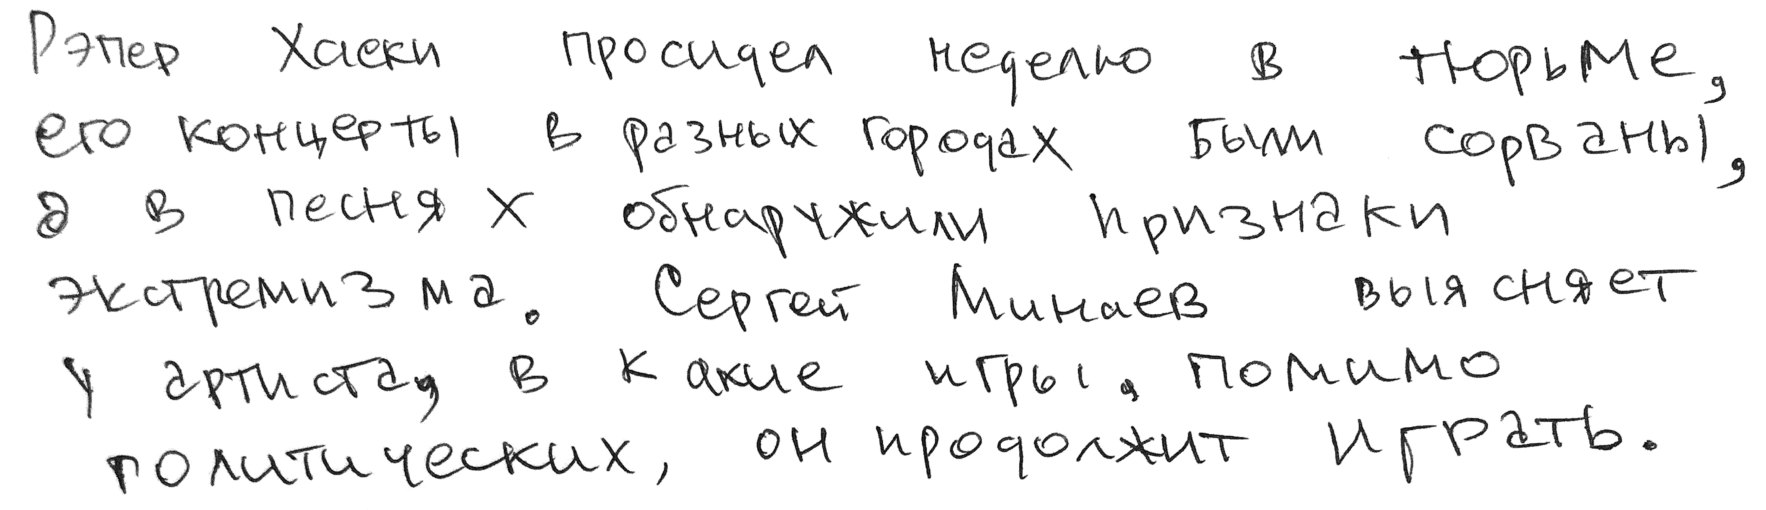 Рэпер Хаски просидел неделю в тюрьме,
его концерты в разных городах были сорваны,
а в песнях обнаружили признаки
экстремизма. Сергей Минаев выясняет
у артиста, в какие игры, помимо
политических, он продолжит играть.